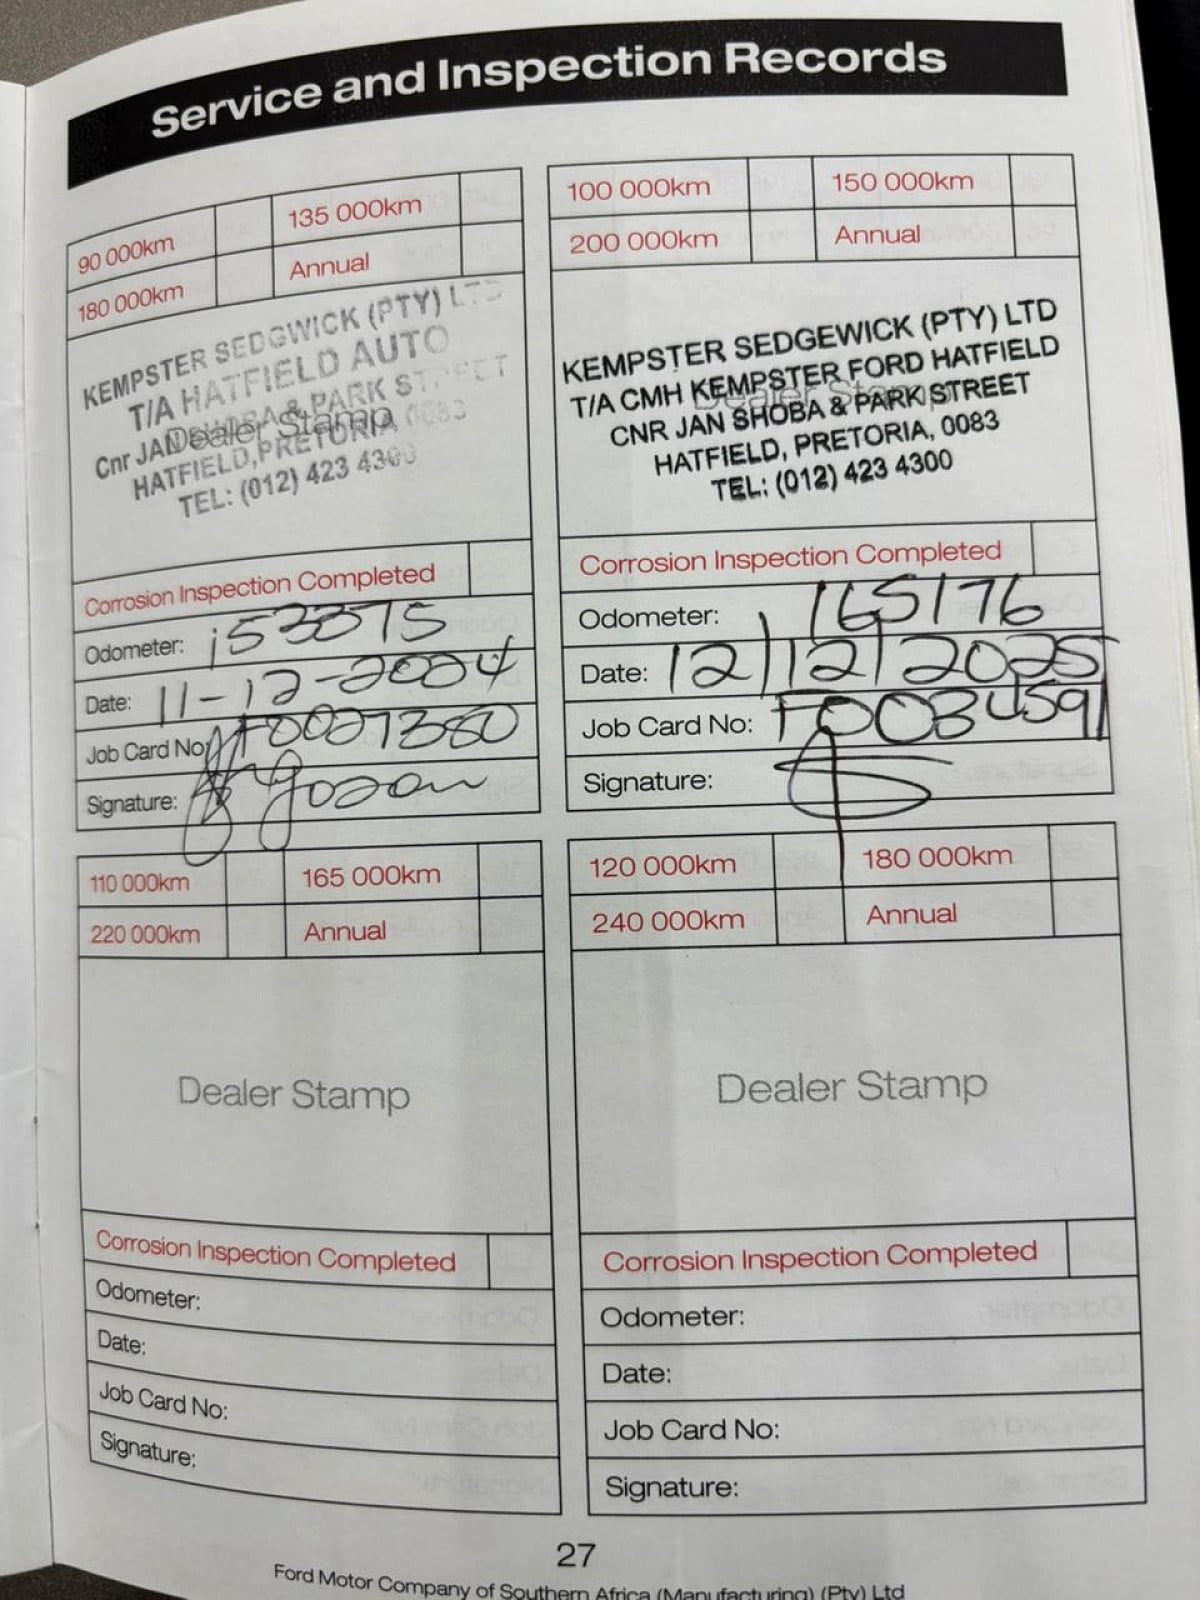 Service and Inspection Records
90 000km
135 000km
180 000km
Annual
KEMPSTER SEDGWICK (PTY) LTD
T/A HATFIELD AUTO
Cnr JAN SHOBA & PARK STREET
HATFIELD, PRETORIA 0083
TEL: (012) 423 4300
Dealer Stamp
Corrosion Inspection Completed
Odometer: 153375
Date: 11-12-2024
Job Card No: F0027380
Signature:
100 000km
150 000km
200 000km
Annual
KEMPSTER SEDGEWICK (PTY) LTD
T/A CMH KEMPSTER FORD HATFIELD
Dealer Stamp
CNR JAN SHOBA & PARK STREET
HATFIELD, PRETORIA, 0083
TEL: (012) 423 4300
Corrosion Inspection Completed
Odometer: 165176
Date: 12/12/2025
Job Card No: F0034591
Signature:
110 000km
165 000km
220 000km
Annual
Dealer Stamp
Corrosion Inspection Completed
Odometer:
Date:
Job Card No:
Signature:
120 000km
180 000km
240 000km
Annual
Dealer Stamp
Corrosion Inspection Completed
Odometer:
Date:
Job Card No:
Signature:
27
Ford Motor Company of Southern Africa (Manufacturing) (Pty) Ltd